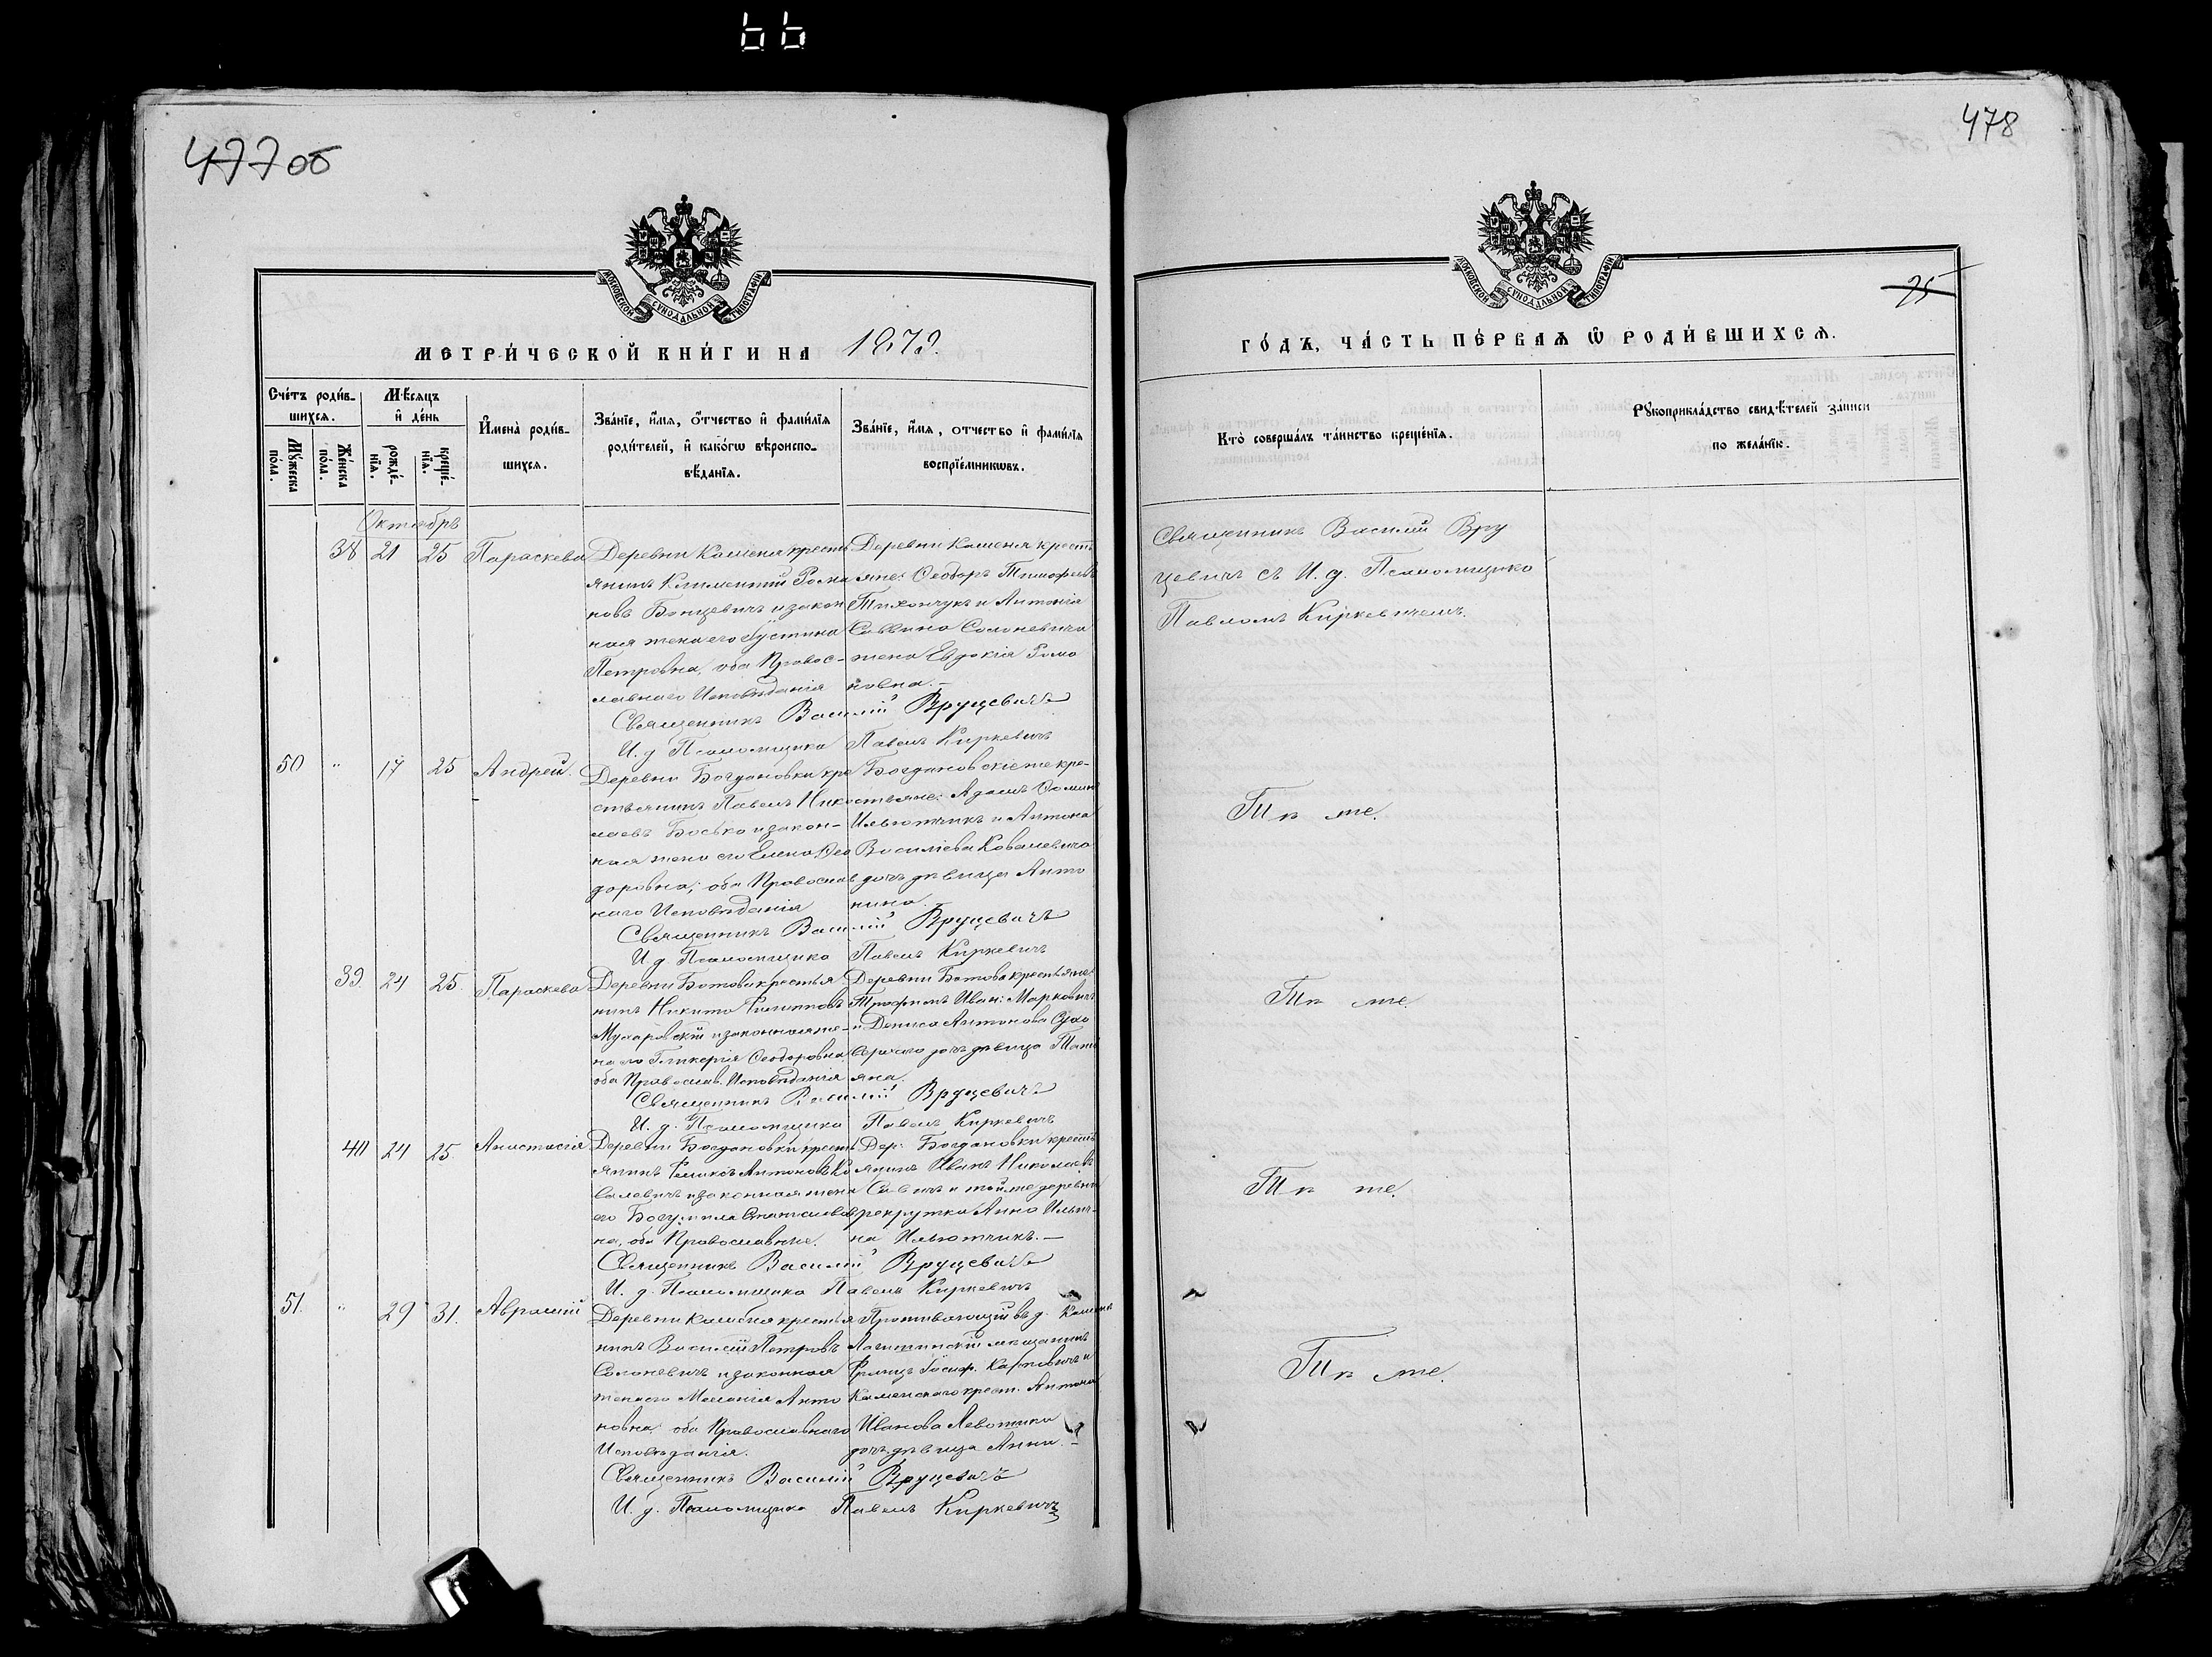 66
477 об
МОСКОВСКОЙ СѴНОДАЛЬНОЙ ТИПОГРАФІИ
МЕТРИ́ЧЕСКОЙ КНИ́ГИ НА 1873.
Сче́тъ роди́вшихся.
Мѣ́сяцъ и҆ де́нь
Мꙋ́жеска по́ла.
Же́нска по́ла.
рожде́нїѧ.
креще́нїѧ.
И҆мена̀ роди́вшихся.
Зва́нїе, и҆́мѧ, ѻ҆́тчество и҆ фами́лїѧ
роди́телей, и҆ како́гѡ вѣроиспо-
вѣ́данїѧ.
Зва́нїе, и҆́мѧ, отчество и҆ фами́лїѧ
воспрїе́мникѡвъ.
Октябрь
38 21 25 Параскева
Деревни Каменя кресть
янинъ Климентій Рома
новъ Бонцевичъ и закон
ная жена его Іустина
Петровна, оба Правос-
лавнаго Исповѣданія
Деревни Каменя кресть
яне: Ѳеодоръ Тимофеевъ
Тихончукъ и Антонія
Саввина Солоневича
жена Евдокія Рома
новна.—
Священникъ Василій Вруцевичъ
И. д Псаломщика Павелъ Киркевичъ
50 " 17 25 Андрей.
Деревни Богдановки кре
стьянинъ Павелъ Нико
лаевъ Босько и закон-
ная жена его Елена Ѳео
доровна; оба Православ
наго Исповѣданія
Богдановскіе же кре-
стьяне: Адамъ Ѳомин
Ильютчикъ и Антона
Василіева Ковалевича
дочь дѣвица Анто
нина.
Священникъ Василій Вруцевичъ
И д Псаломщика Павелъ Киркевичъ
39. 24 25. Параскева
Деревни Ботова крестья
нинъ Никита Филипповъ
Мухаровскій и законная же-
на его Гликерія Ѳеодоровна
оба Православ. Исповѣданія
Деревни Ботова крестьяне:
Трофимъ Иван: Марковичъ
и Дениса Антонова
дочь дѣвица Тать
яна.
Священникъ Василій Вруцевичъ
И. д. Псаломщика Павелъ Киркевичъ
40 24 25 Анастасія
Деревни Богдановки кресть
янинъ Феликсъ Антоновъ Ко
валевичъ и законная жена
его Богумила Станиславов
на, оба Православные.
Дер: Богдановки кресть
янинъ Иванъ Николаевъ
Савичъ и той же деревни
рекрутка Анна Ильи-
на Ильютчикъ.—
Священникъ Василій Вруцевичъ
И. д. Псаломщика Павелъ Киркевичъ
51. " 29 31. Аврамій
Деревни Каменя крестья
нинъ Василій Петровъ
Солоневичъ и законная
жена его Меланія Анто
новна; оба Православнаго
Исповѣданія.
Проживающій въ д. Камень
Логишинскій мѣщанинъ
Францъ Іосиф. Карповичъ и
Каменскаго крест. Антона
Иванова Левотика
дочь дѣвица Анна.—
Священникъ Василій Вруцевичъ
И. д. Псаломщика Павелъ Киркевичъ
478
25
МОСКОВСКОЙ СѴНОДАЛЬНОЙ ТИПОГРАФІИ
ГО́ДЪ, ЧА́СТЬ ПЕ́РВАѦ Ѡ҆ РОДИ́ВШИХСѦ.
Кто̀ соверша́лъ та́инство креще́нїѧ.
Рꙋкоприкла́дство свидѣ́телей за́писи
по жела́нїю.
Священникъ Василій Вру
цевичъ съ И. д. Псаломщика
Павломъ Киркевичемъ.
Тѣ же.
Тѣ же.
Тѣ же.
Тѣ же.